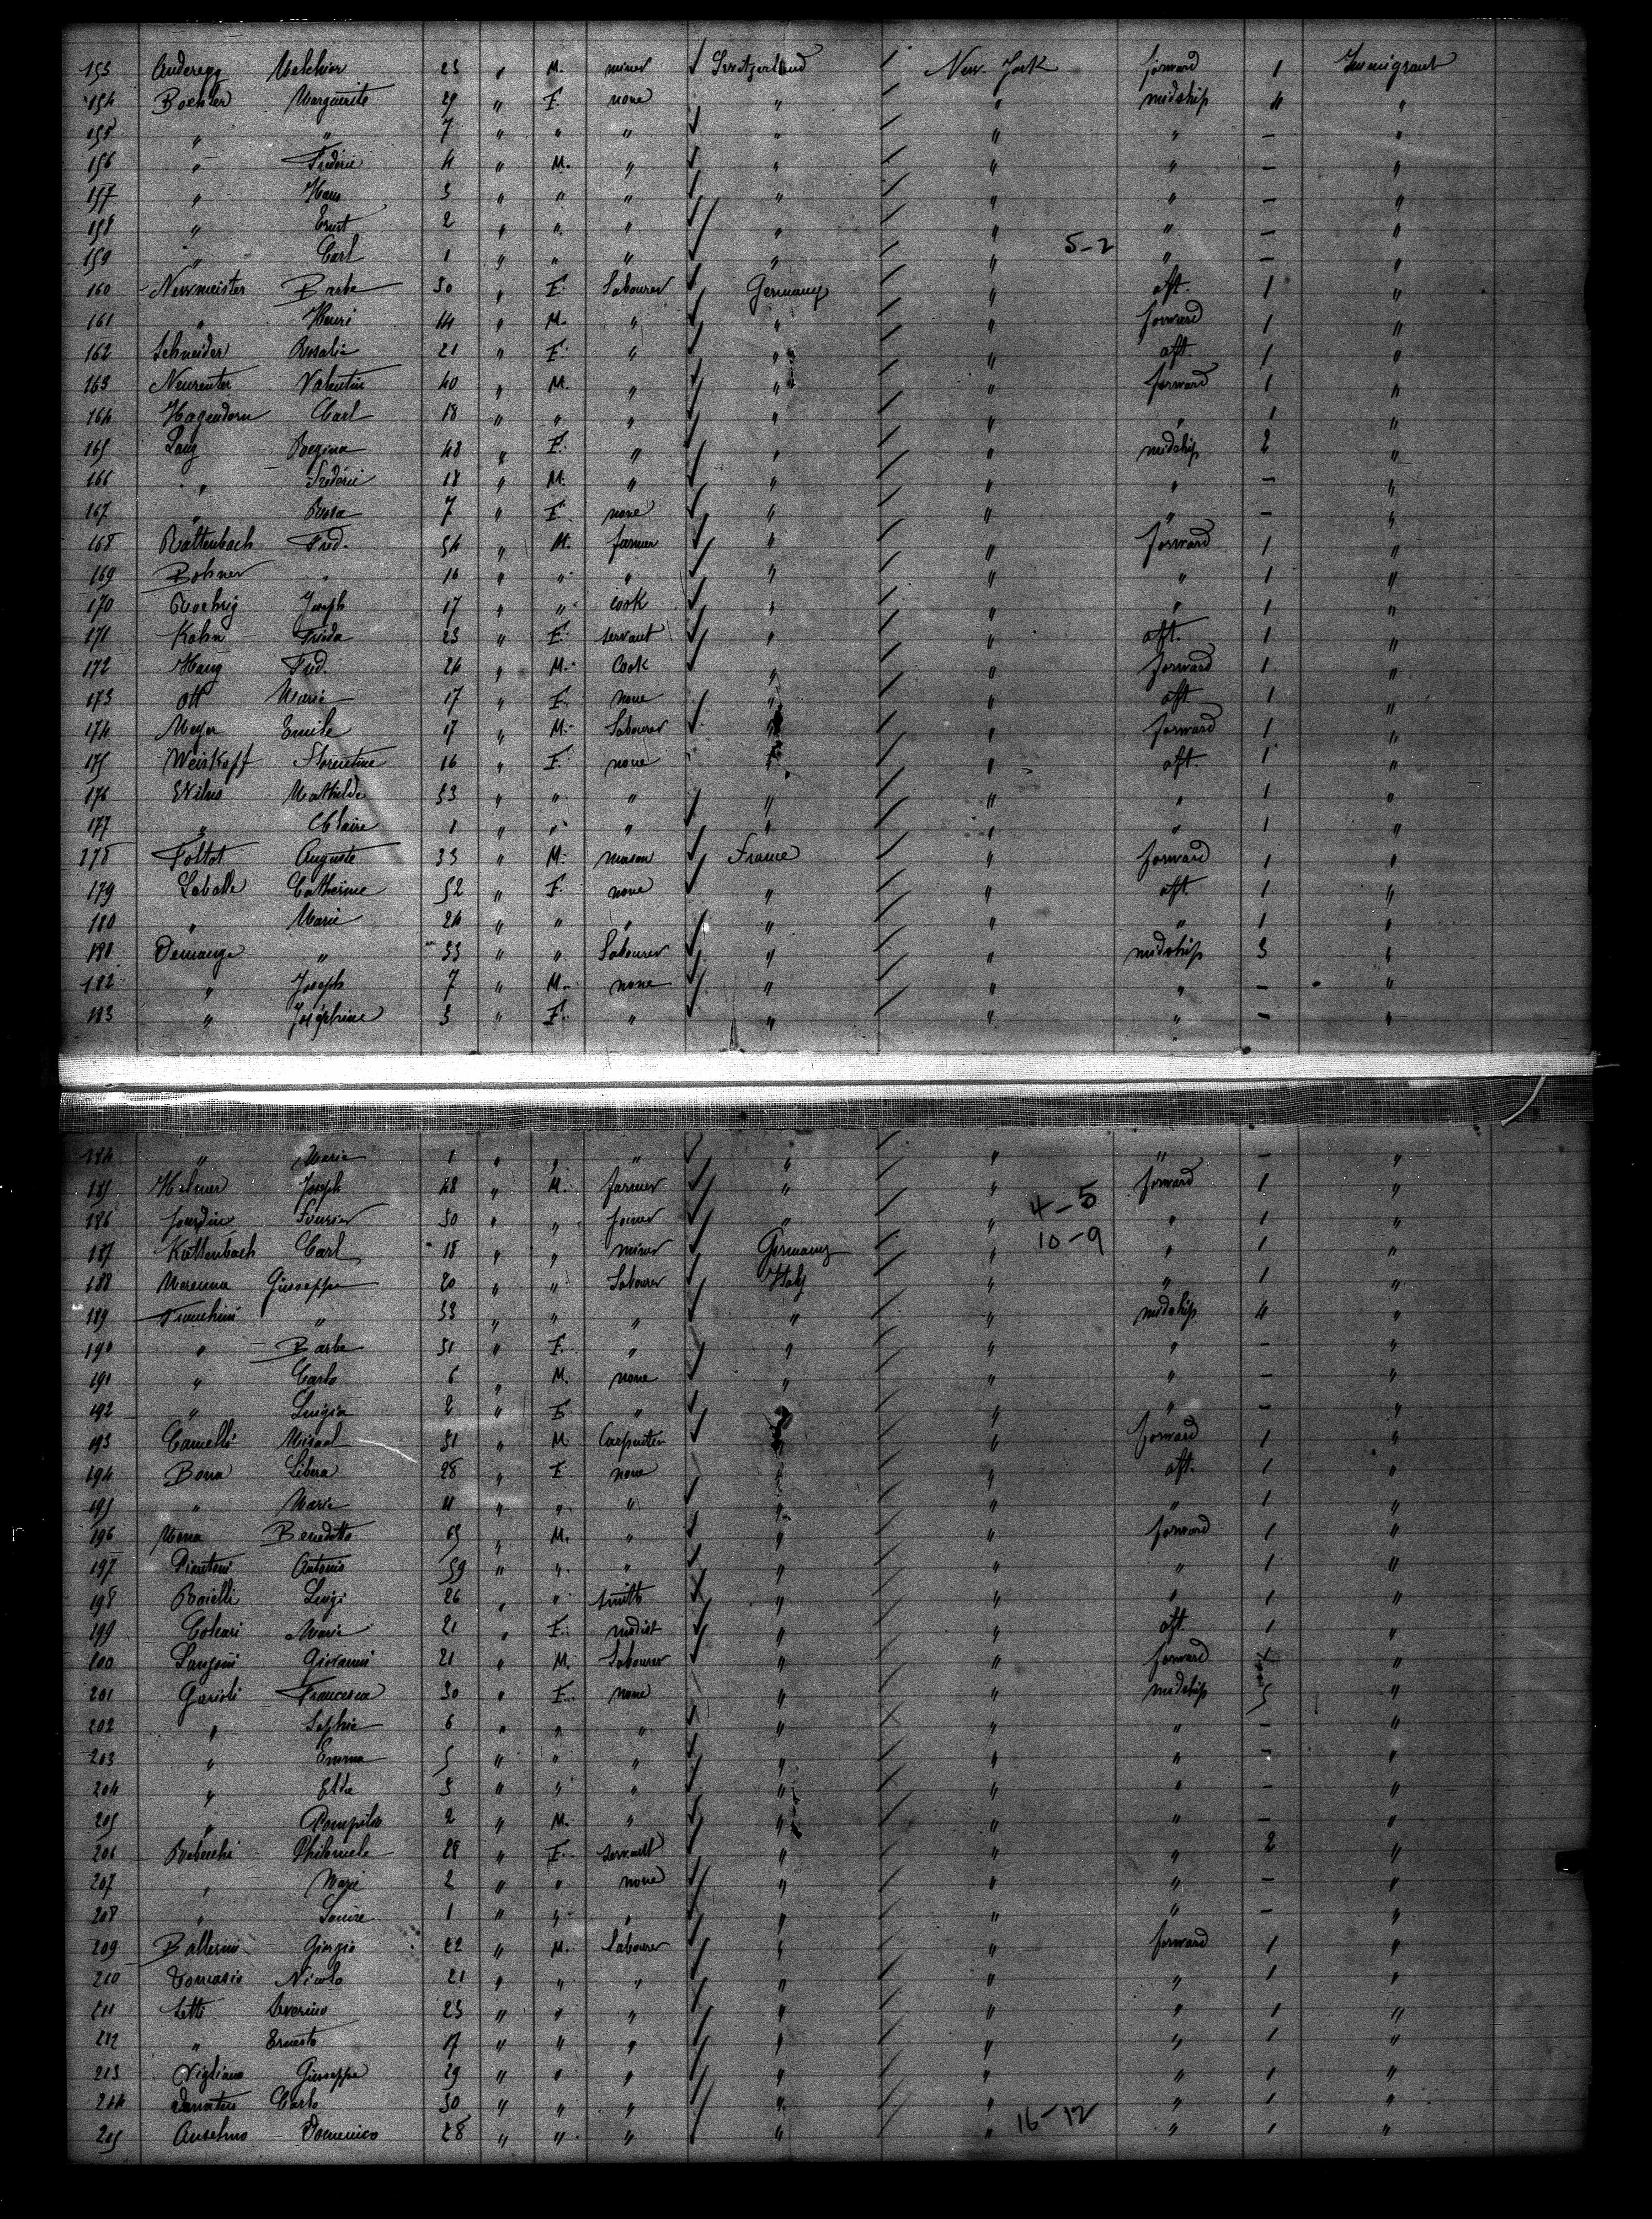 153 Anderegg Melchior 23 " M. miner Switzerland New York forward 1 Immigrant
154 Boehler Marguerite 29 " F. none " " midship 4 "
155 " " 7 " " " " " " - "
156 " Frédéric 4 " M. " " " " - "
157 " Hans 3 " " " " " " - "
158 " Ernst 2 " " " " " " - "
159 " Carl 1 " " " " " 5-2 " - "
160 Newmeister Barbe 50 " F. Labourer Germany " aft. 1 "
161 " Henri 14 " M. " " " forward 1 "
162 Schneider Rosalie 21 " F. " " " aft. 1 "
163 Neureuter Valentin 40 " M. " " " forward 1 "
164 Hagendorn Carl 18 " " " " " " 1 "
165 Lang Regina 48 " F. " " " midship 2 "
166 " Frédéric 18 " M. " " " " - "
167 " Rosa 7 " F. none " " " - "
168 Rattenbach Fred. 54 " M. farmer " " forward 1 "
169 Bohner " 16 " " " " " " 1 "
170 Roehrig Joseph 17 " " cook " " " 1 "
171 Kohn Frida 23 " F. servant " " aft. 1 "
172 Haug Fred. 24 " M. Cook " " forward 1 "
173 Ott Marie 17 " F. none " " aft 1 "
174 Meyer Emile 17 " M. Labourer " " forward 1 "
175 Weiskopf Florentine 16 " F. none " " aft. 1 "
176 Mathilde 53 " " " " " " 1 "
177 " Claire 1 " " " " " " 1 "
178 Foltot Auguste 33 " M. mason France " forward 1 "
179 Laballe Catherine 52 " F. none " " aft. 1 "
180 " Marie 24 " " " " " " 1 "
181 Demange " 33 " " Labourer " " midship 3 "
182 " Joseph 7 " M. none " " " - "
183 " Joséphine 3 " F. " " " " - "
184 " Marie 1 " " " " " " - "
185 Helmer Joseph 48 " M. farmer " " forward 1 "
186 Jourdin 50 " " " " 4-5 " 1 "
187 Kuttenbach Carl 18 " " miner Germany " 10-9 " 1 "
188 Giuseppe 20 " " Labourer Italy " " 1 "
189 Franchini " 33 " " " " " midship 4 "
190 " Barbe 31 " F. " " " " - "
191 " Carlo 6 " M. none " " " - "
192 " Luigia 2 " F. " " " " - "
193 31 " M. Carpenter " " forward 1 "
194 Bona Libera 28 " F. none " " aft. 1 "
195 " Marie 11 " " " " " " 1 "
196 Mona Benedetto 65 " M. " " " forward 1 "
197 Piantoni Antonio 59 " " " " " " 1 "
198 Boielli Luigi 26 " " smith " " " 1 "
199 Marie 21 " F. modist " " aft. 1 "
200 Giovanni 21 " M. Labourer " " forward 1 "
201 Garioli Francesca 30 " F. none " " midship 5 "
202 " Sophie 6 " " " " " " - "
203 " Emma 5 " " " " " " - "
204 " Elda 3 " " " " " " - "
205 " Pompilio 2 " M. " " " " - "
206 Rebecchi 28 " F. servant " " " 2 "
207 " Marie 2 " " none " " " - "
208 " Louise 1 " " " " " " - "
209 Ballerini Giorgio 22 " M. Labourer " " forward 1 "
210 Tomasio Nicola 21 " " " " " " 1 "
211 Setti Severino 23 " " " " " " 1 "
212 " Ernesto 17 " " " " " " 1 "
213 Vigliano Giuseppe 29 " " " " " " 1 "
214 Carlo 30 " " " " " " 1 "
215 Anselmo Domenico 28 " " " " " 16-12 " 1 "